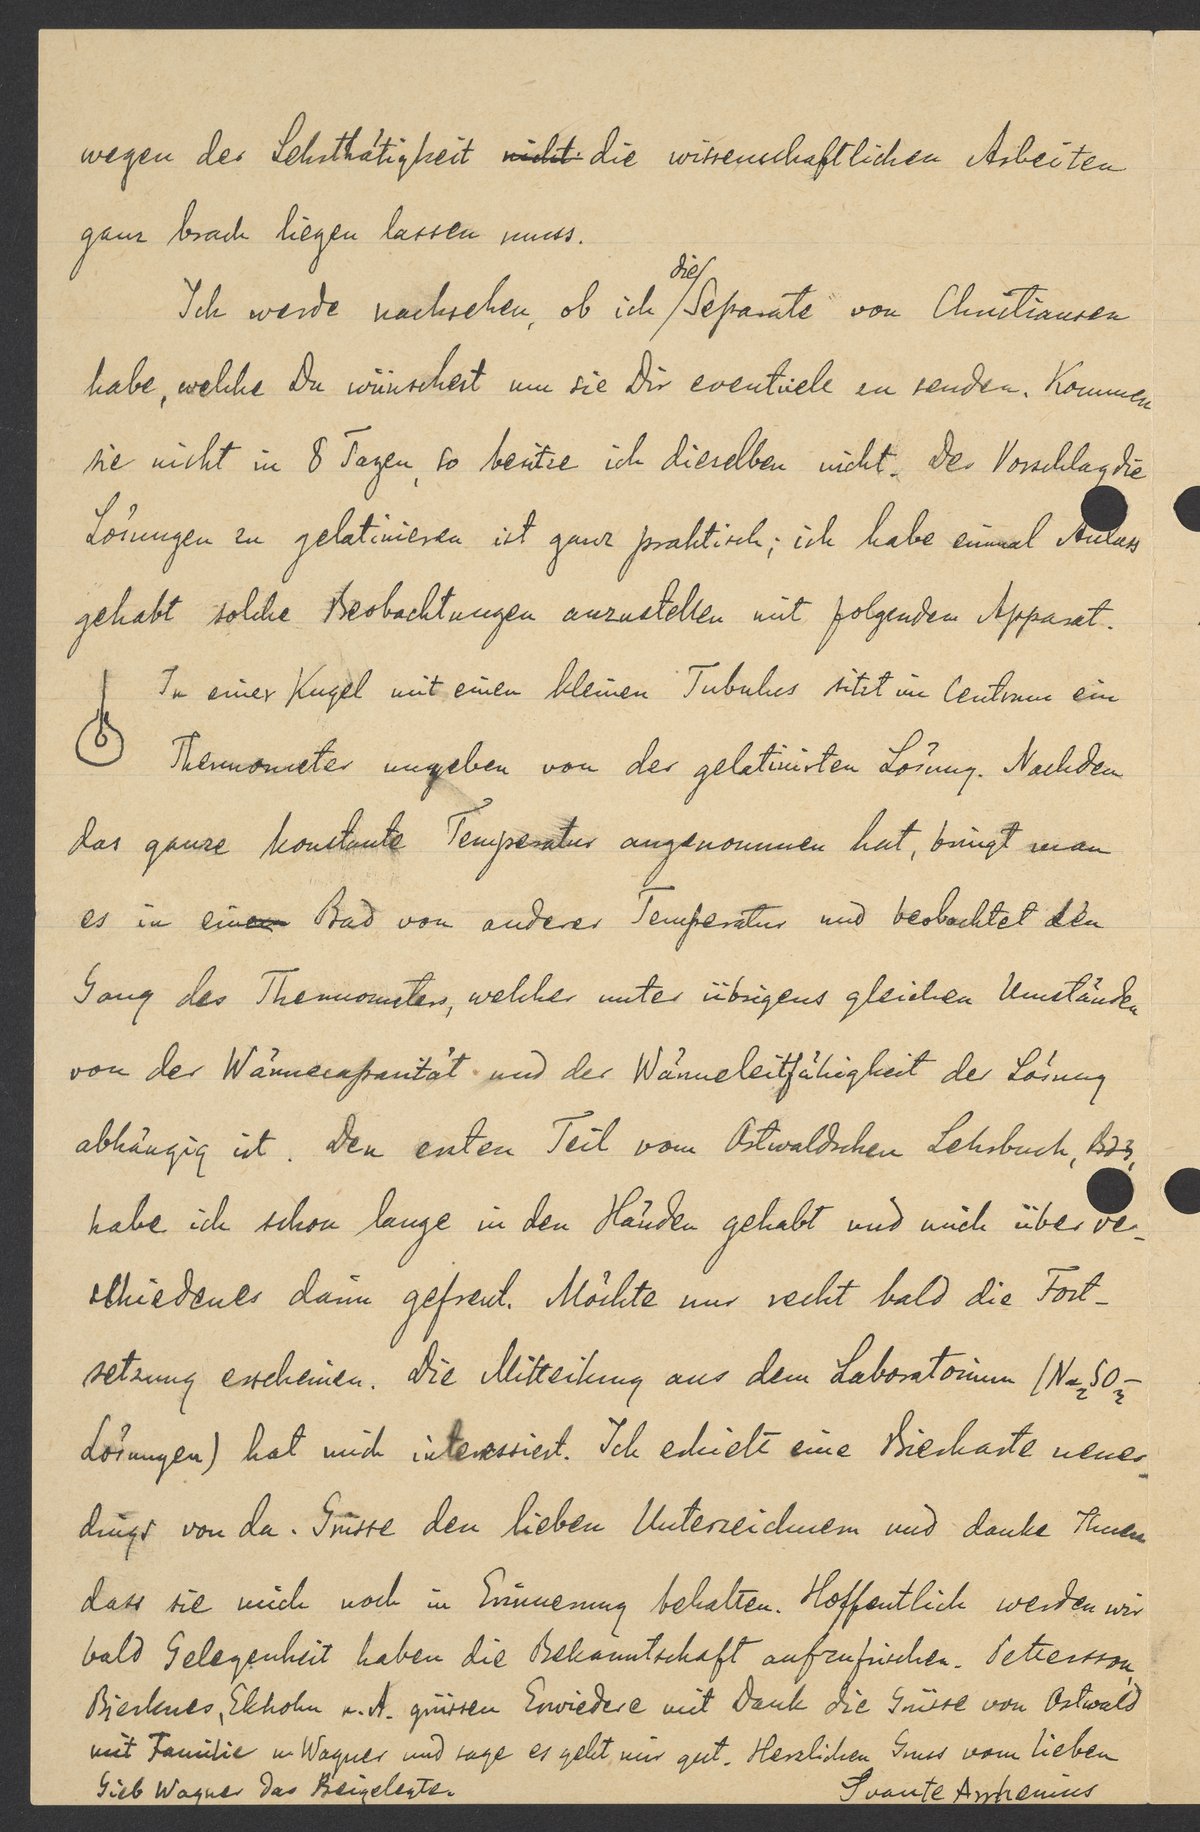 wegen der Lehrthätigkeit nicht die wissenschaftlichen Arbeiten
ganz brach liegen lassen muss.
Ich werde nachsehen, ob ich die Separate von Christiansen
habe, welche Du wünschest um sie Dir eventuele zu senden. Kommen
sie nicht in 8 Tagen, so besitze ich dieselben nicht. Der Vorschlag die
Lösungen zu gelatinieren ist ganz praktisch; ich habe einmal Anlass
gehabt solche Beobachtungen anzustellen mit folgendem Apparat.
In einer Kugel mit einen kleinen Tubulus sitzt im Centrum ein
Thermometer umgeben von der gelatinirten Lösung. Nachdem
das ganze konstante Temperatur angenommen hat, bringt man
es in ein Bad von anderer Temperatur und beobachtet den
Gang des Thermometers, welcher unter übrigens gleichen Umständen
von der Wärmecapacität und der Wärmeleitfähigkeit der Lösung
abhängig ist. Den ersten Teil vom Ostwaldschen Lehrbuch,
habe ich schon lange in den Händen gehabt und mich über ver-
schiedenes darin gefreut. Möchte nur recht bald die Fort-
setzung erscheinen. Die Mitteilung aus dem Laboratorium (Na2SO3-
Lösungen) hat mich interessiert. Ich erhielt eine Bierkarte neuer-
dings von da. Grüsse den lieben Unterzeichnern und danke Ihnen
dass sie mich noch in Erinnerung behalten. Hoffentlich werden wir
bald Gelegenheit haben die Bekanntschaft aufzufrischen. Pettersson,
Bjerknes, Ekholm u. A. grüssen Erwiedere mit Dank die Grüsse von Ostwald
mit Familie u Wagner und sage es geht mir gut. Herzlichen Gruss vom lieben
Gieb Wagner das Beigelegte. Svante Arrhenius